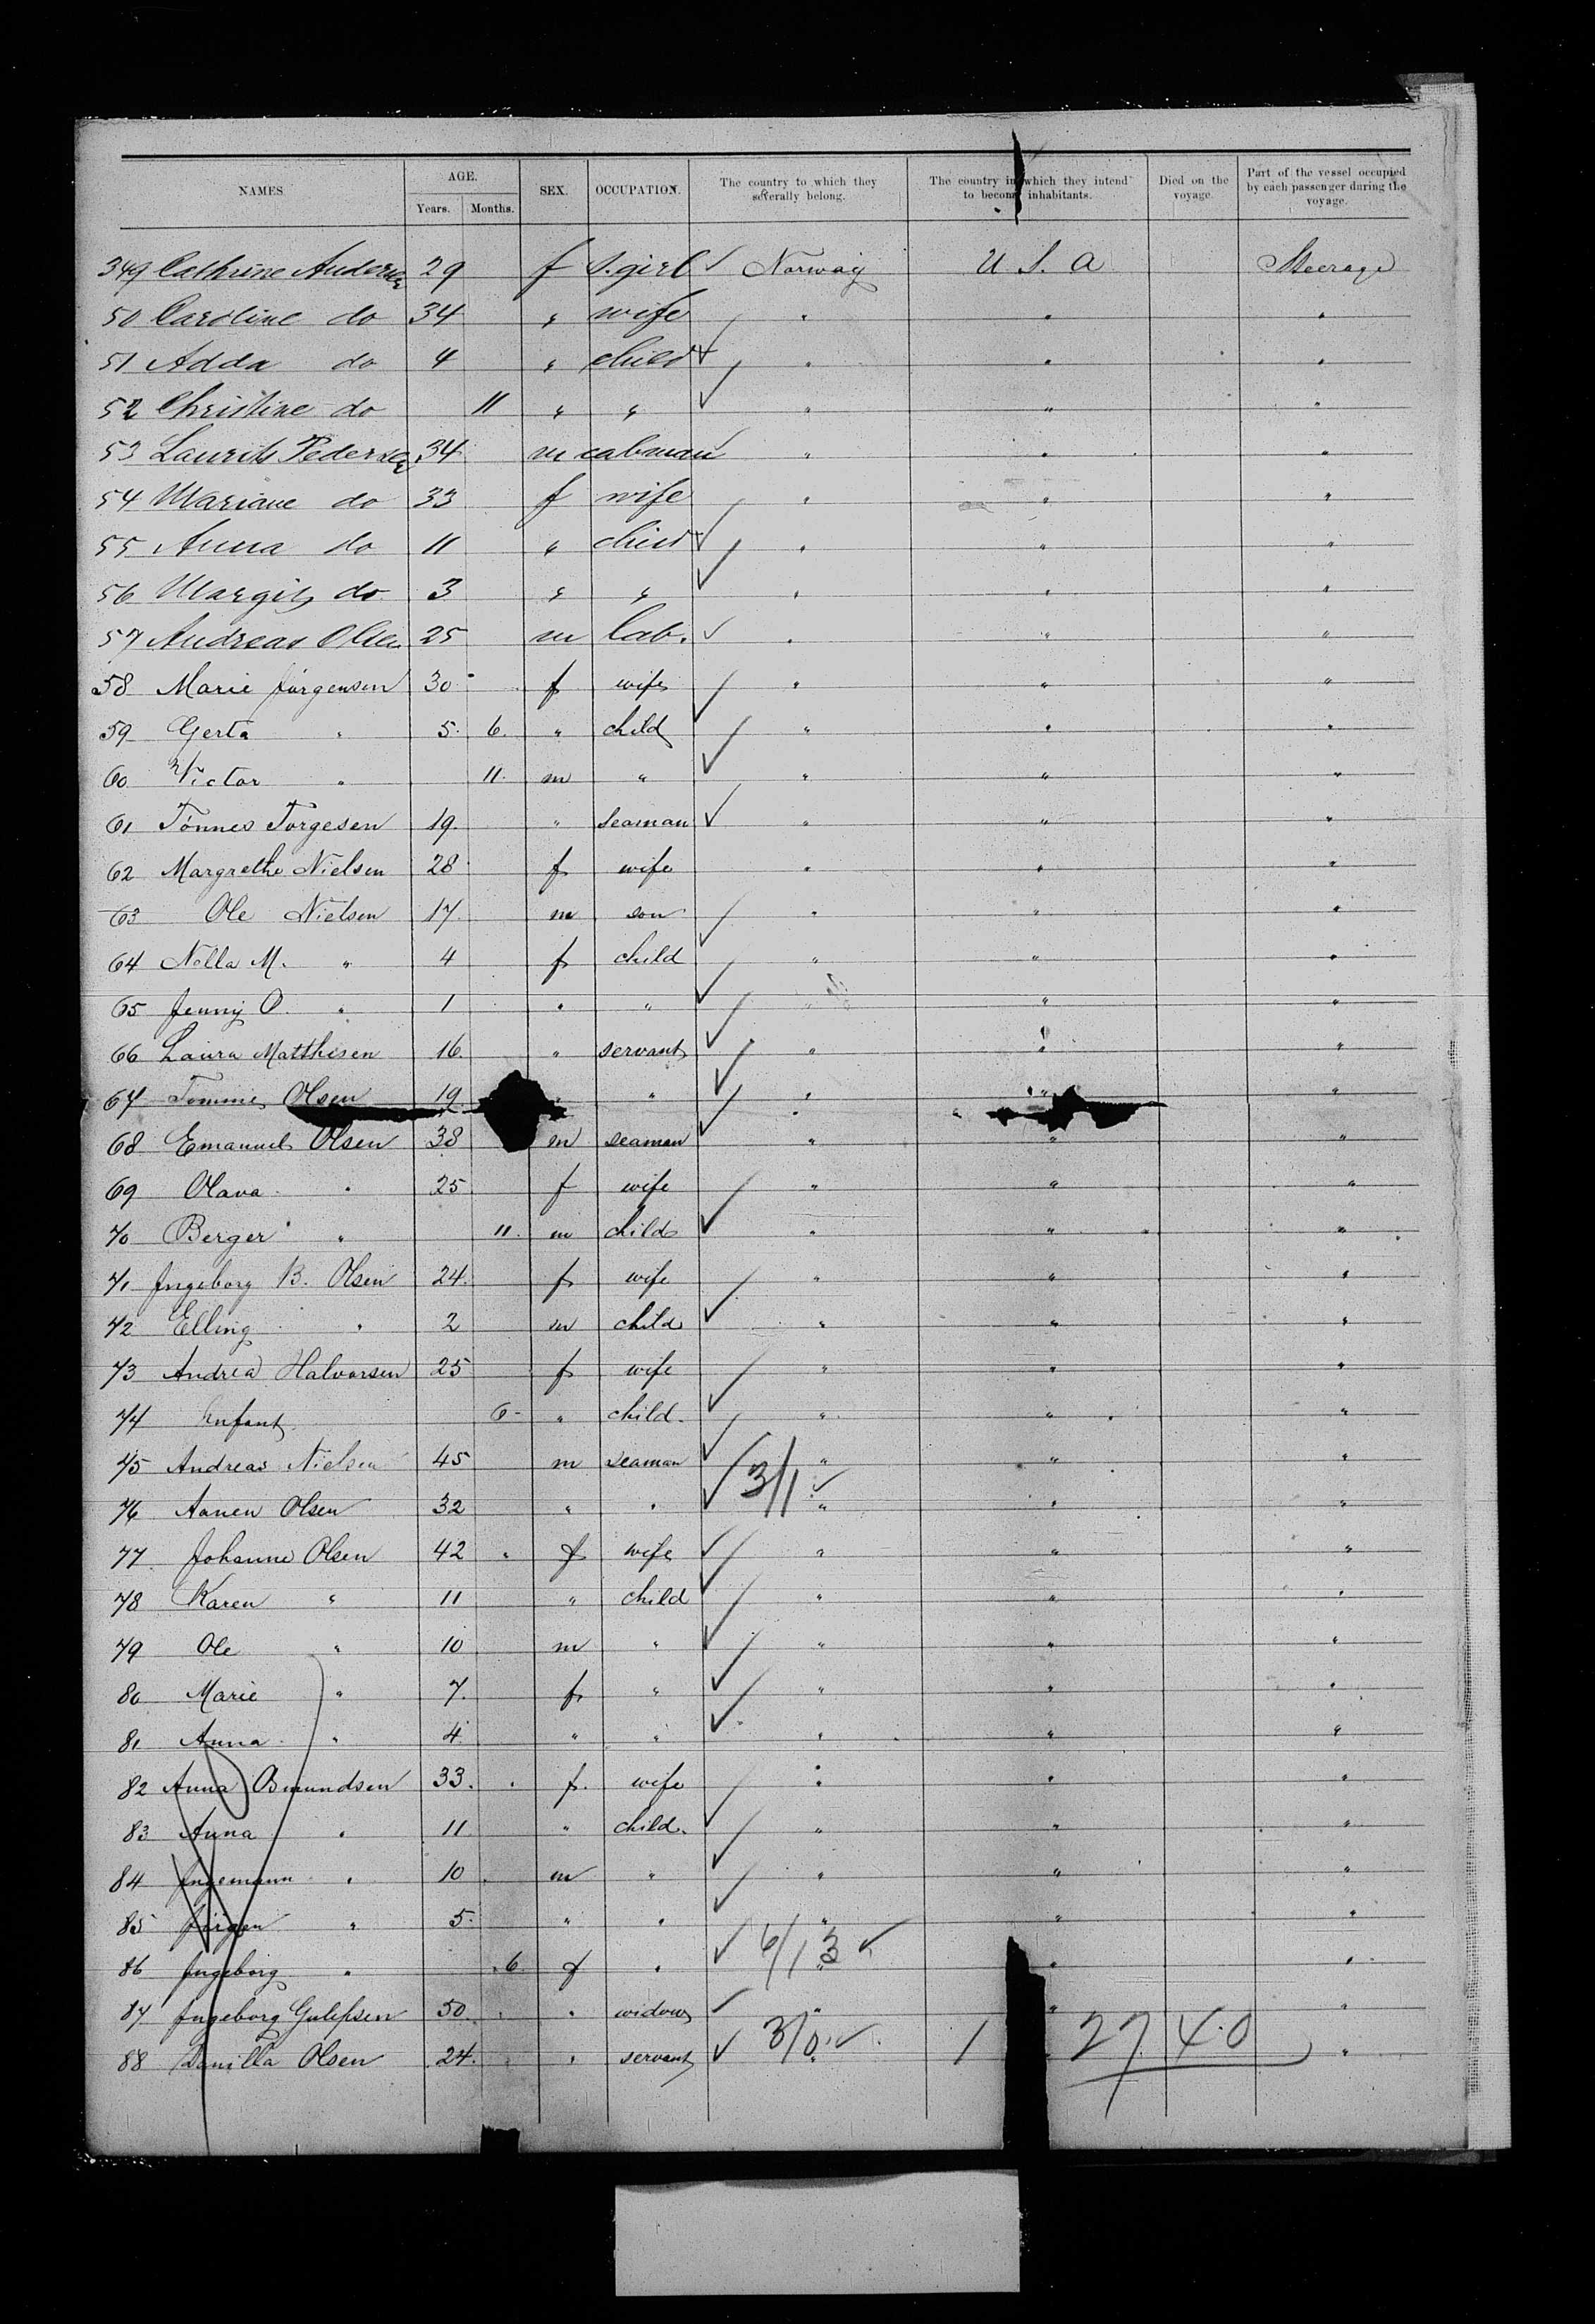 NAMES. AGE. Years. Months. SEX. OCCUPATION. The country to which they severally belong. The country in which they intend to become inhabitants. Died on the voyage. Part of the vessel occupied by each passenger during the voyage.
349 Cathrine Andersen 29 f S. girl ✓ Norway U. S. A Steerage
50 Caroline do 34 " wife " " "
51 Adda do 4 " child ✓ " " "
52 Christine do 11 " " ✓ " " "
53 Laurits Pedersen 34 m cabman " " "
54 Mariane do 33 f wife " " "
55 Anna do 11 " child ✓ " " "
56 Margit do 3 " " ✓ " " "
57 Andreas Olsen 25 m lab. ✓ " " "
58 Marie Jörgensen 30 f wife ✓ " " "
59 Gerta " 5 6 " child ✓ " " "
60 Victor " 11 m " " " "
61 Tönnes Torgesen 19 " seaman ✓ " " "
62 Margrethe Nielsen 28 f wife " " "
63 Ole Nielsen 17 m son ✓ " " "
64 Nella M. " 4 f child ✓ " " "
65 Jenny O. " 1 " " ✓ " " "
66 Laura Matthisen 16 " servant ✓ " " "
67 Tommie Olsen 19 " " ✓ " " "
68 Emanuel Olsen 38 m seaman " " "
69 Olava " 25 f wife ✓ " " "
70 Berger " 11 m child " " "
71 Ingeborg B. Olsen 24 f wife ✓ " " "
72 Elling " 2 m child " " "
73 Andrea Halvorsen 25 f wife ✓ " " "
74 Infant 6 " child ✓ " " "
75 Andreas Nielsen 45 m seaman ✓ 3/1 ✓ " " "
76 Aanen Olsen 32 " " " " "
77 Johanne Olsen 42 f wife ✓ " " "
78 Karen " 11 " child ✓ " " "
79 Ole " 10 m " ✓ " " "
80 Marie " 7 f " ✓ " " "
81 Anna " 4 " " " " "
82 Anna Osmundsen 33 f wife ✓ " " "
83 Anna " 11 " child ✓ " " "
84 Ingemann " 10 m " ✓ " " "
85 Jörgen " 5 " " " " "
86 Ingeborg " 6 f " ✓ 6/13 ✓ " " "
87 Ingeborg Gulefsen 50 " widow ✓ " " "
88 Danilla Olsen 24 " servant ✓ 3/0 ✓ 1 27 40 "